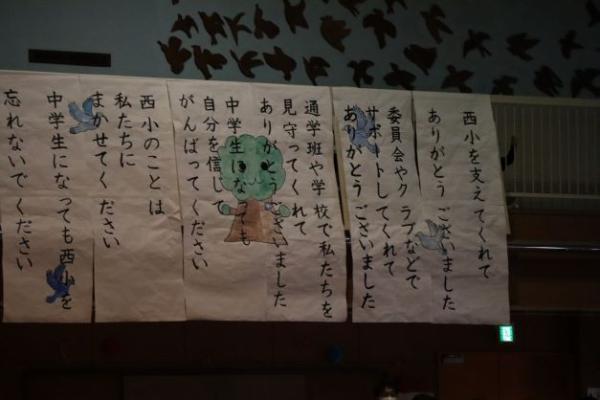 西小を支えてくれて
ありがとうございました
委員会やクラブなどで
サポートしてくれて
ありがとうございました
通学班や学校で私たちを
見守ってくれて
ありがとうございました
中学生になっても
自分を信じて
がんばってください
西小のことは
私たちに
まかせてください
中学生になっても西小を
忘れないでください